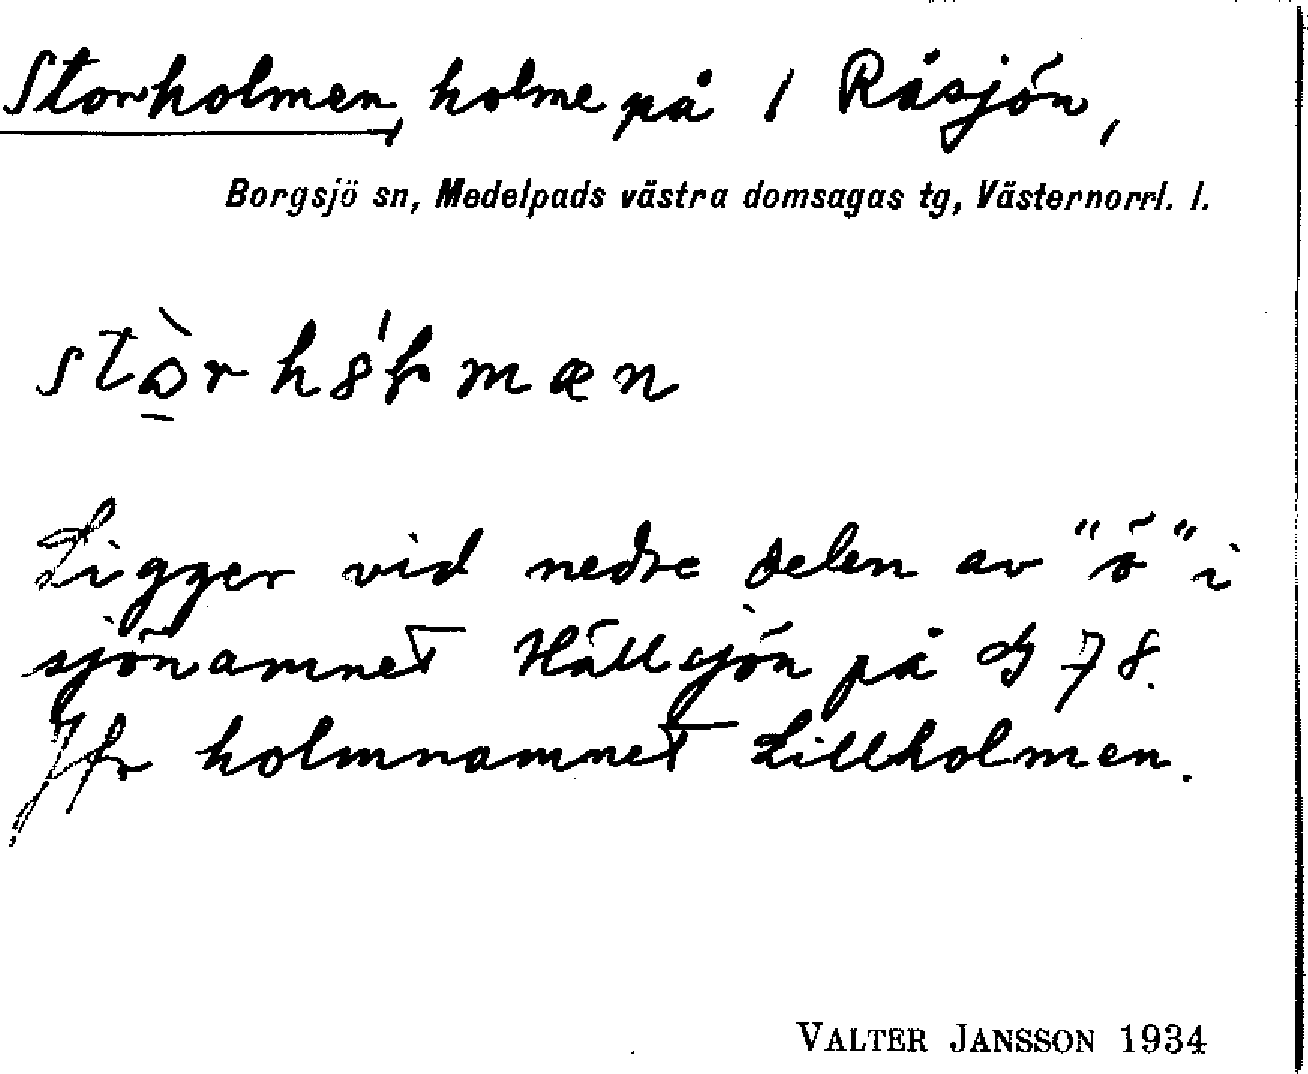 Storholmen, holme på 1 Råsjön,
Borgsjö sn, Medelpads västra domsagas tg, Västernorrl. l.
Ligger vid nedre delen av "ö" i
sjönamnet Hällsjön på G 78.
Jfr holmnamnet Lillholmen.
VALTER JANSSON 1934